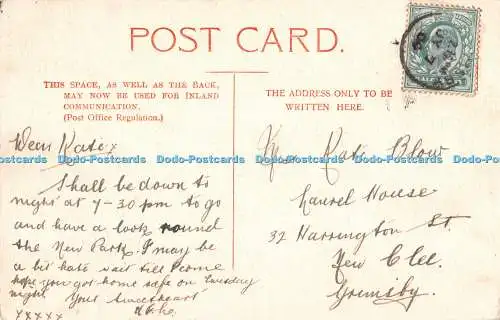 POST CARD.
THIS SPACE, AS WELL AS THE BACK,
MAY NOW BE USED FOR INLAND
COMMUNICATION.
(Post Office Regulation.)
THE ADDRESS ONLY TO BE
WRITTEN HERE.
Dear Kate x
Shall be down to
night at 7-30 pm to go
and have a look round
the New Park. I may be
a bit late wait till I come
hope you got home safe on Tuesday
night. Your Sweetheart
xxxxx
Kate Blow
Laurel House
32 Harrington St.
New Clee.
Grimsby.
Dodo-Postcards Dodo-Postcards Dodo-Postcards Dodo-Postcards Dodo-Postcards Dodo-Postcards